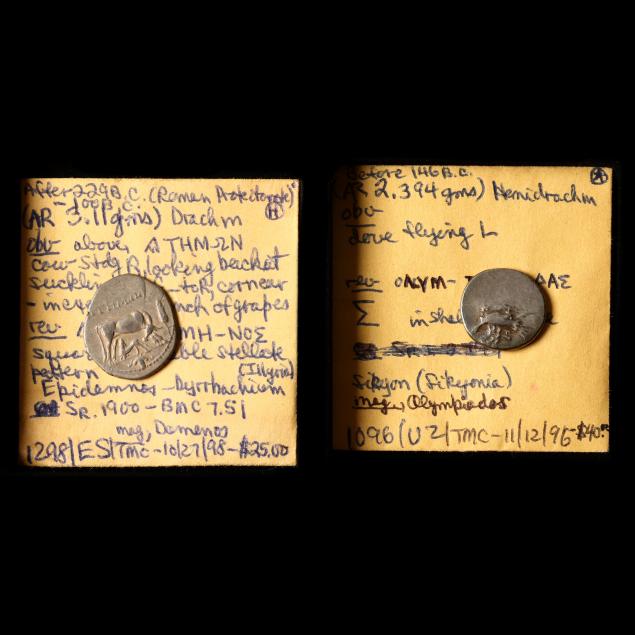 After 229 B.C. (Roman Protectorate)
- 100 B.C. H
(AR 3.11 gms) Drachm
obv above, ΜΗΝ
cow stdg R, looking back at
suckling to R, corn ear
- in ex. nch of grapes
rev MH-ΝΟΣ
squa ble stellate
pattern (Illyria)
Epidamnos - Dyrrhachium
SR. 1900 - BMC 7.51
mag, Damenos
1298/ES/TMC-10/27/98-$25.00
Before 146 B.C. A
(AR 2.394 gms) Hemidrachm
obv
dove flying L
rev ΟΛΥΜ- ΔΑΣ
Σ in
Sikyon (Sikyonia)
mag, Olympiados
1096/UZ/TMC-11/12/96-$40.